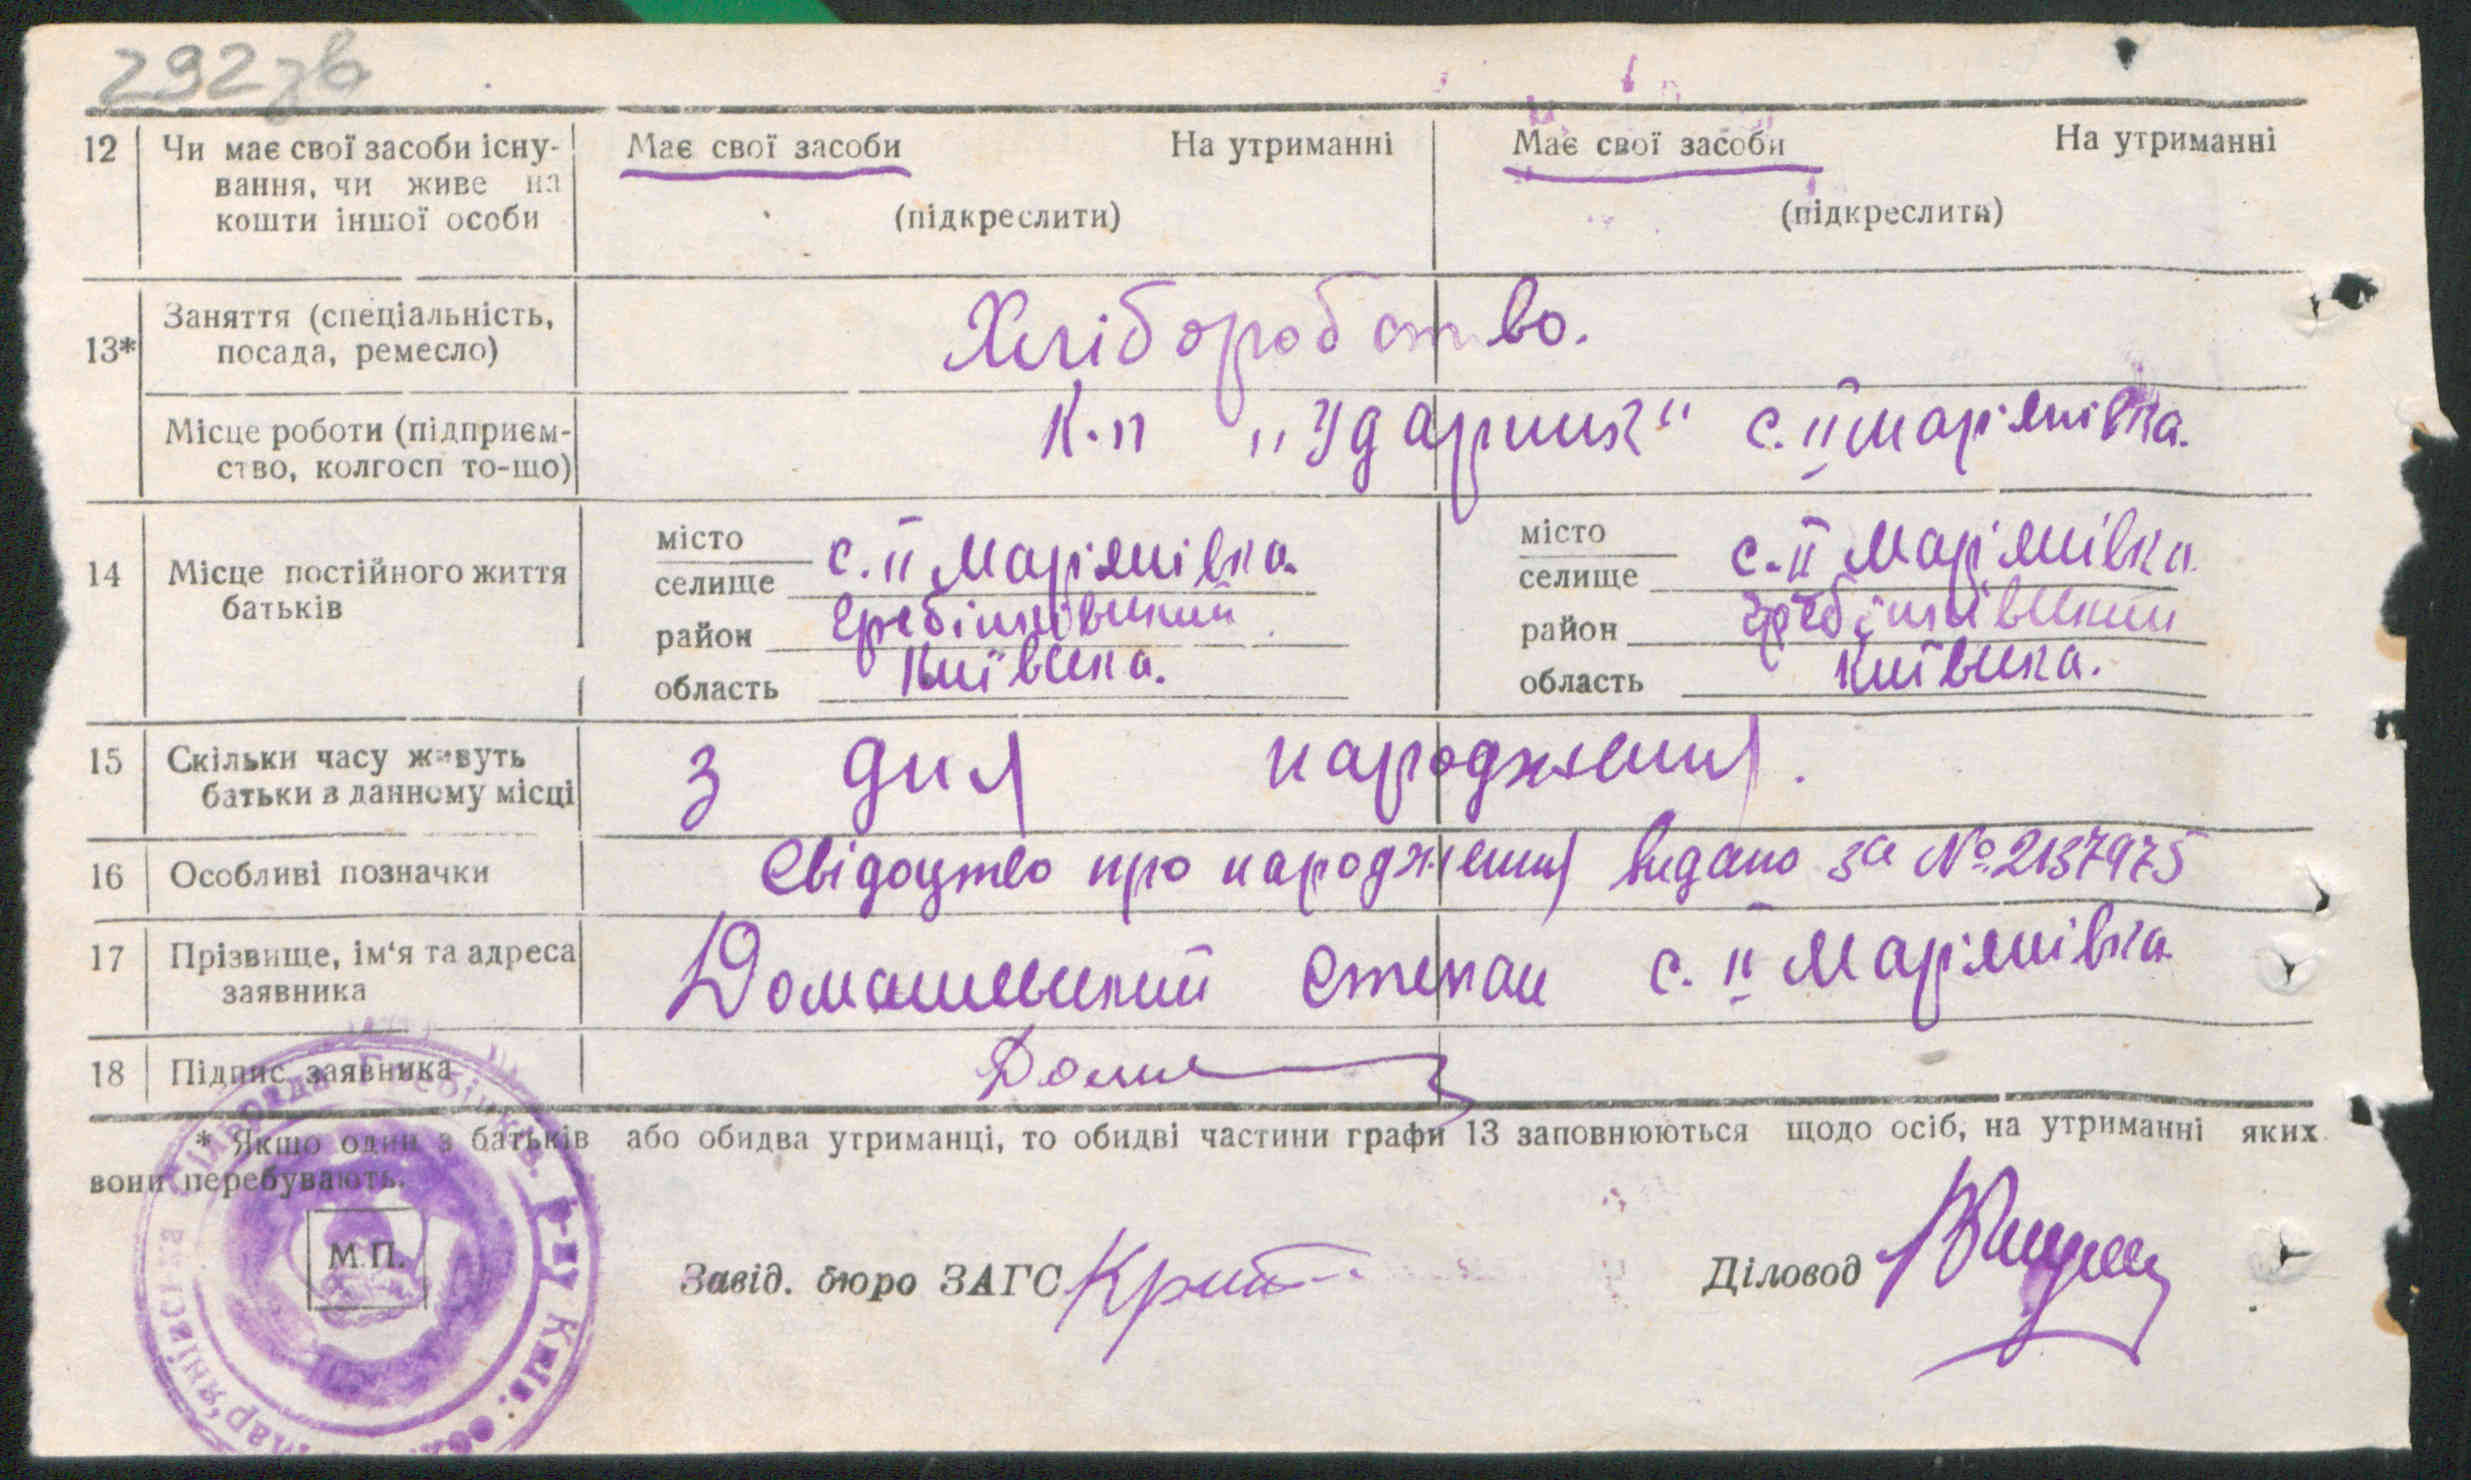 292зв
12 Чи має свої засоби існу- Має свої засоби На утриманні Має свої засоби На утриманні
вання, чи живе на
кошти іншої особи (підкреслити) (підкреслити)
13* Заняття (спеціальність, Хліборобство.
посада, ремесло)
Місце роботи (підприєм- К.п "Ударник" с. ІІ Мар'янівка.
ство, колгосп то-що)
14 Місце постійного життя
батьків
місто
селище с. ІІ Мар'янівка.
район Гребінківський
область Київська.
місто
селище с. ІІ Мар'янівка.
район Гребінківський
область Київська.
15 Скільки часу живуть З дня народження.
батьки в данному місці
16 Особливі позначки Свідоцтво про народження видано за № 2137975
17 Прізвище, ім'я та адреса Домашевський Степан с. ІІ Мар'янівка.
заявника
18 Підпис заявника Дома
* Якщо один з батьків або обидва утриманці, то обидві частини графи 13 заповнюються щодо осіб, на утриманні яких
вони перебувають.
М.П.
Завід. бюро ЗАГС Діловод
Мар'янівська сільрада Гребінків. р-ну Київ. обл